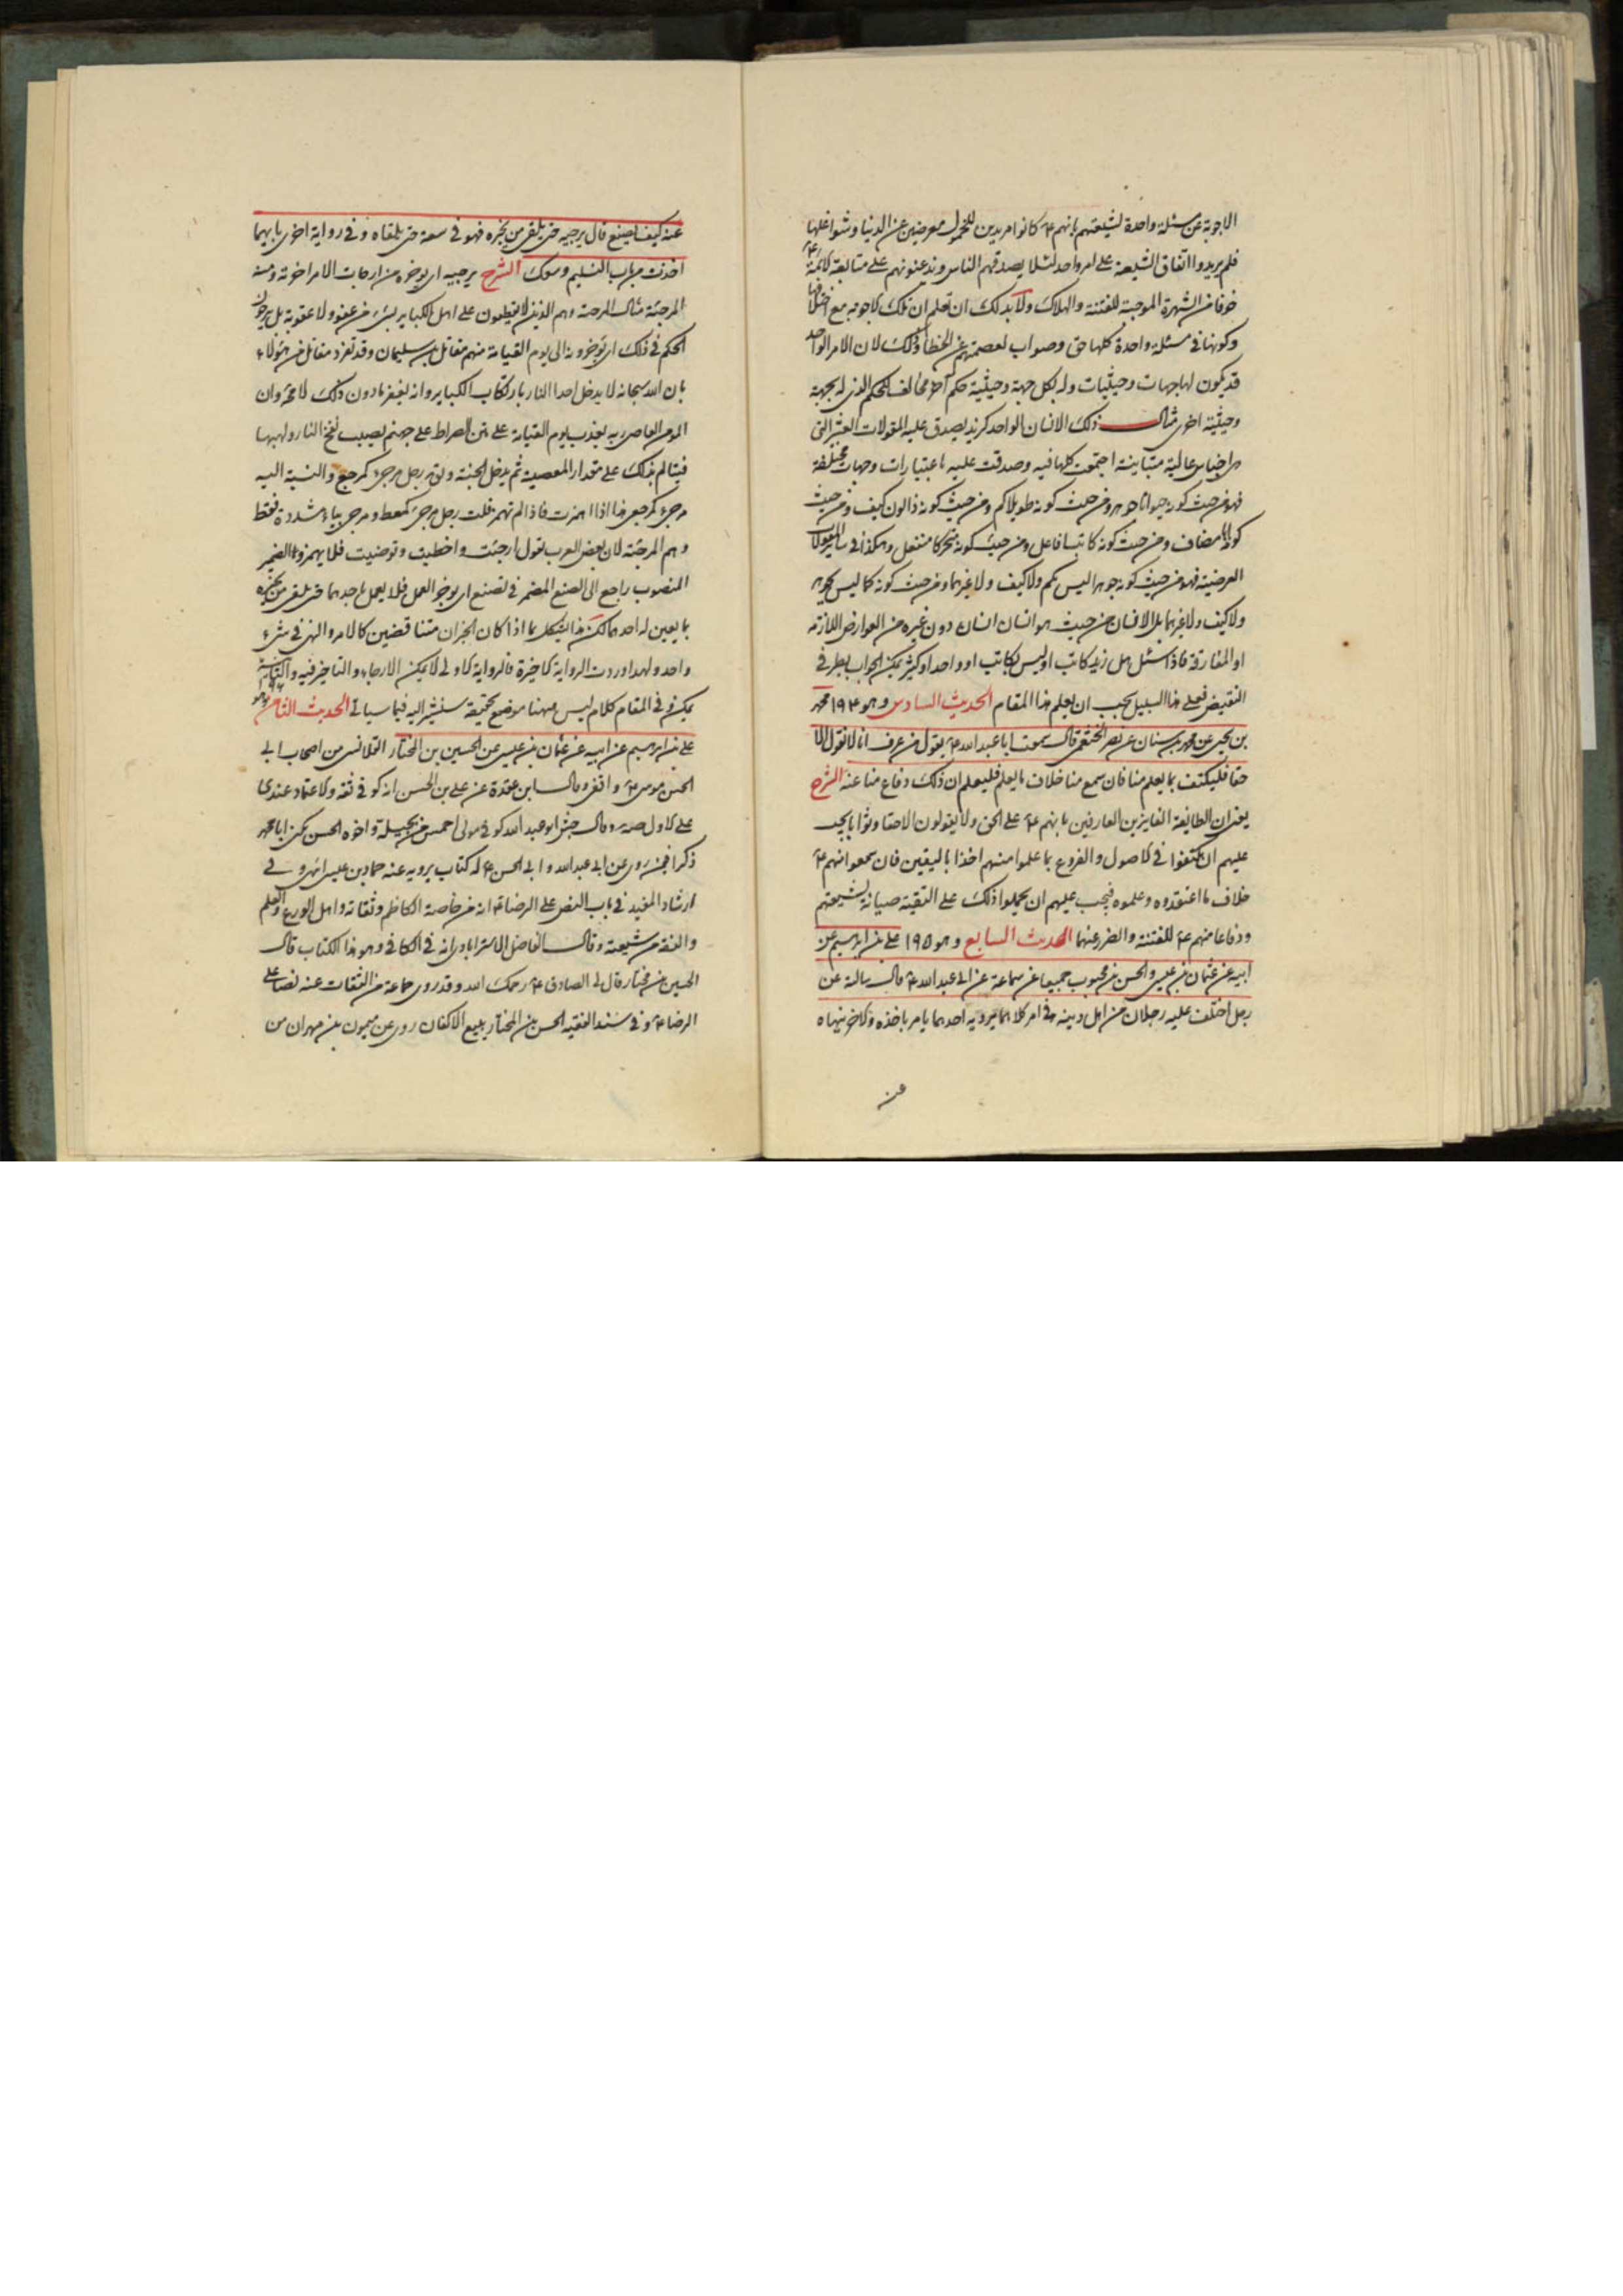 الاجوبة عن مسئلة واحدة لشيعتهم بانهم ع كانوا مريدين للخمول معرضين عن الدنيا وشواغلها
فلم يريدوا اتفاق الشيعة على امر واحد لئلا يصدقهم الناس ويذعنونهم على متابعة الائمة ع
خوفا من الشهرة الموجبة للفتنة والهلاك ولا بد لك ان تعلم ان تلك الاجوبه مع اختلافها
وكونها في مسئلة واحدة كلها حق وصواب لعصمتهم عن الخطأ وذلك لان الامر الواحد
قد يكون لها جهات وحيثيات وله بكل جهة وحيثية حكم آخر مخالف للحكم الذى له بجهة
وحيثية اخرى مثال ذلك الانسان الواحد كزيد يصدق عليه المقولات العشر التى
هى اجناس عالية متباينة اجتمعت كلها فيه وصدقت عليه باعتبارات وجهات مختلفة
فهو من حيث كونه حيوانا جوهر ومن حيث كونه طويلا كم ومن حيث كونه ذا لون كيف ومن حيث
كونه ابا مضاف ومن حيث كونه كاتبا فاعل ومن حيث كونه متحركا منفعل وهكذا في سائر المقولات
العرضية فهو من حيث كونه جوهرا ليس بكم ولا كيف ولا غيرهما ومن حيث كونه كما ليس بجوهر
ولا كيف ولا غيرهما بل الانسان من حيث هو انسان انسان دون غيره من العوارض اللازمه
او المفارقة فاذا سئل هل زيد كاتب او ليس بكاتب او واحد او كثير يمكن الجواب بطرفي
النقيض فعلى هذا السبيل يجب ان يعلم هذا المقام الحديث السادس وهو ١٩٤ محمد
بن يحيى عن محمد بن سنان عن نصر الخثعمى قال سمعت ابا عبد الله ع يقول من عرف انا لا نقول الا
حقا فليكتف بما يعلم منا فان سمع منا خلاف ما يعلم فليعلم ان ذلك دفاع منا عنه الشرح
يعنى ان الطايفة الفايزين العارفين بانهم ع على الحق ولا يقولون الا حقا وثوابا يجب
عليهم ان يكتفوا في الاصول والفروع بما علموا منهم اخذا باليقين فان سمعوا منهم ع
خلاف ما اعتقدوه وعلموه فيجب عليهم ان يحملوا ذلك على التقية صيانة لشيعتهم
ودفاعا منهم ع للفتنة والضرر عنهما الحديث السابع وهو ١٩٥ على بن ابرهيم عن
ابيه عن عثمان بن عيسى والحسن بن محبوب جميعا عن سماعة عن ابى عبد الله ع قال سالته عن
رجل اختلف عليه رجلان من اهل دينه في امر كلاهما يرويه احدهما يامر باخذه والاخر ينهاه
عنه
عنه كيف يصنع قال يرجيه حتى يلقى من يخبره فهو في سعة حتى يلقاه وفي رواية اخرى بايهما
اخذت من باب التسليم وسعك الشرح يرجيه اى يؤخره من ارجات الامر اخرته ومنه
المرجئة مثال المرجعة وهم الذين لا يقطعون على اهل الكباير بشىء من عفو ولا عقوبة بل يرجون
الحكم في ذلك اى يؤخرونه الى يوم القيامة منهم مقاتل بن سليمان وقد تفرد مقاتل من هؤلاء
بان الله سبحانه لا يدخل احدا النار بارتكاب الكباير وانه يغفر ما دون ذلك لا محة وان
المومن العاصى ربه يعذب يوم القيامة على متن الصراط على جهنم يصيبه نفخ النار ولهبها
فيتالم بذلك على مقدار المعصية ثم يدخل الجنة ويق رجل مرجىء كمرجع والنسبة اليه
مرجىء كمرجعى هذا اذا همزت فاذا لم تهمز قلت رجل مرج كمعط ومرجى بياء مشددة فقط
وهم المرجئة لان بعض العرب يقول ارجيت واخطيت وتوضيت فلا يهمز والضمير
المنصوب راجع الى الصنع المضمر في تصنع اى يؤخر العمل فلا يعمل باحدهما حتى يلقى من يخبره
بما يعين له احدهما لكن هذا يشكل بما اذا كان الخبران متناقضين كالامر والنهى في شىء
واحد ولهذا وردت الرواية الاخيرة فالرواية الاولى لا يمكن الارجاء والتاخير فيه والثانية
يمكن وفي المقام كلام ليس ههنا موضع تحقيقه سنشير اليه فيما سياتى الحديث الثامن وهو ١٩٦
على بن ابرهيم عن ابيه عن عثمان بن عيسى عن الحسين بن المختار القلانسى من اصحاب ابى
الحسن موسى ع واقفى وقال ابن عقدة عن على بن الحسن انه كوفى ثقه والاعتماد عندى
على الاول صه وقال جش ابو عبد الله كوفى مولى احمس من بجيلة واخوه الحسن يكنى ابا محمد
ذكرا فيمن روى عن ابى عبد الله وابى الحسن ع له كتاب يرويه عنه حماد بن عيسى انتهى وفى
ارشاد المفيد في باب النص على الرضا ع انه من خاصة الكاظم وثقاته واهل الورع والعلم
والفقه من شيعته وقال الفاضل الاسترابادى انه في الكافى وهو هذا الكتاب قال
الحسين بن مختار قال لى الصادق ع رحمك الله وقد روى جماعة من الثقات عنه نصا على
الرضا ع وفي سند الفقيه الحسن بن المختار بياع الاكفان روى عن ميمون بن مهران من